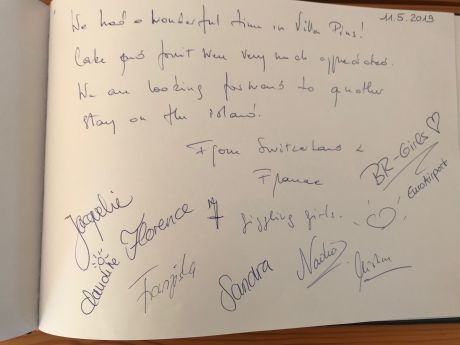 11.5.2019
We had a wonderful time in Villa Pins!
Cake and fruit were very much appreciated.
We are looking forward to another
stay on the island.
From Switzerland &
France
BR-Girls
EuroAirport
7 giggling girls.
Jacqueline
Claudine
Florence
Franziska
Sandra
Nadia